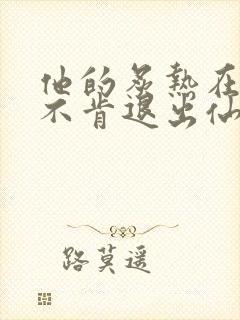 他的炙热在
不肯退出仙
路莫遥